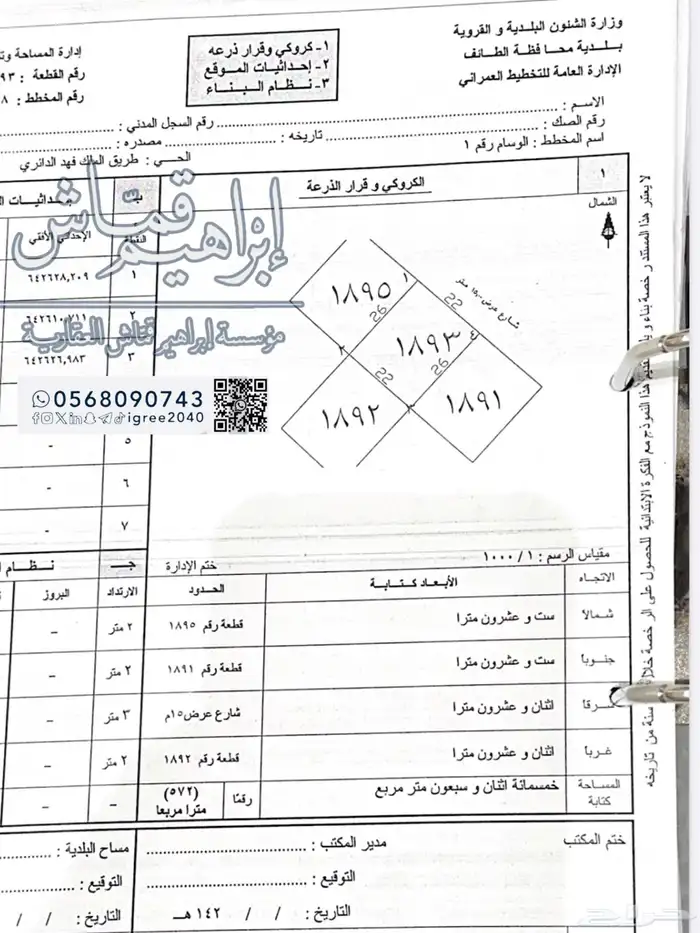 وزارة الشئون البلدية و القروية
بلدية محافظة الطائف
الإدارة العامة للتخطيط العمراني
١- كروكي وقرار ذرعه
٢- إحداثيات الموقع
٣- نظام البناء
إدارة المساحة
رقم القطعة : ٩٣
رقم المخطط : ٨
الاسم :
رقم السجل المدني :
رقم الصك :
تاريخه :
مصدره :
اسم المخطط : الوسام رقم ١
الحي : طريق الملك فهد الدائري
١
الكروكي و قرار الذرعة
الشمال
النقطة
الإحداثي الأفقي
١
٦٤٢٦٢٨,٢٠٩
٢
٦٤٢٦١٠,٧١١
٣
٦٤٢٦٢٦,٩٨٣
٥ -
٦ -
٧ -
إبراهيم قماش
مؤسسة ابراهيم قماش العقارية
0568090743
igree2040
١٨٩٥
١٨٩٣
١٨٩١
١٨٩٢
22
26
26
22
١
٢
٣
٤
شارع عرض ١٥ متر
مقياس الرسم : ١ / ١٠٠٠
ختم الإدارة
جـ
الاتجاه
الأبعاد كتابة
الحدود
الارتداد
البروز
شمالا
ست و عشرون مترا
قطعة رقم ١٨٩٥
٢ متر
-
جنوبا
ست و عشرون مترا
قطعة رقم ١٨٩١
٢ متر
-
شرقا
اثنان و عشرون مترا
شارع عرض ١٥م
٣ متر
-
غربا
اثنان و عشرون مترا
قطعة رقم ١٨٩٢
٢ متر
-
المساحة كتابة
خمسمائة اثنان و سبعون متر مربع
رقمًا
(٥٧٢) مترا مربعا
-
-
ختم المكتب
مدير المكتب :
مساح البلدية :
التوقيع :
التوقيع :
التاريخ : / / ١٤٢ هـ
التاريخ : / /
حراج